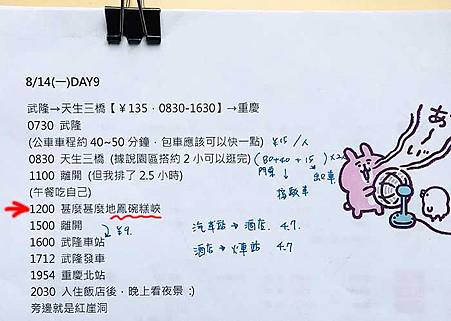 8/14(一)DAY9
武隆→天生三橋【￥135．0830-1630】→重慶
0730 武隆
(公車車程約 40~50 分鐘，包車應該可以快一點) ¥15/人
0830 天生三橋 (據說園區搭約 2 小可以逛完) (80+40+15)×2
1100 離開 (但我排了 2.5 小時) 門票 接駁車 出口車
(午餐吃自己)
1200 甚麼甚麼地鳳碗糕峽
1500 離開 ¥9. 汽車站→酒店 4.7
1600 武隆車站 酒店→火車站 4.7
1712 武隆發車
1954 重慶北站
2030 入住飯店後，晚上看夜景 :)
旁邊就是紅崖洞
あ~